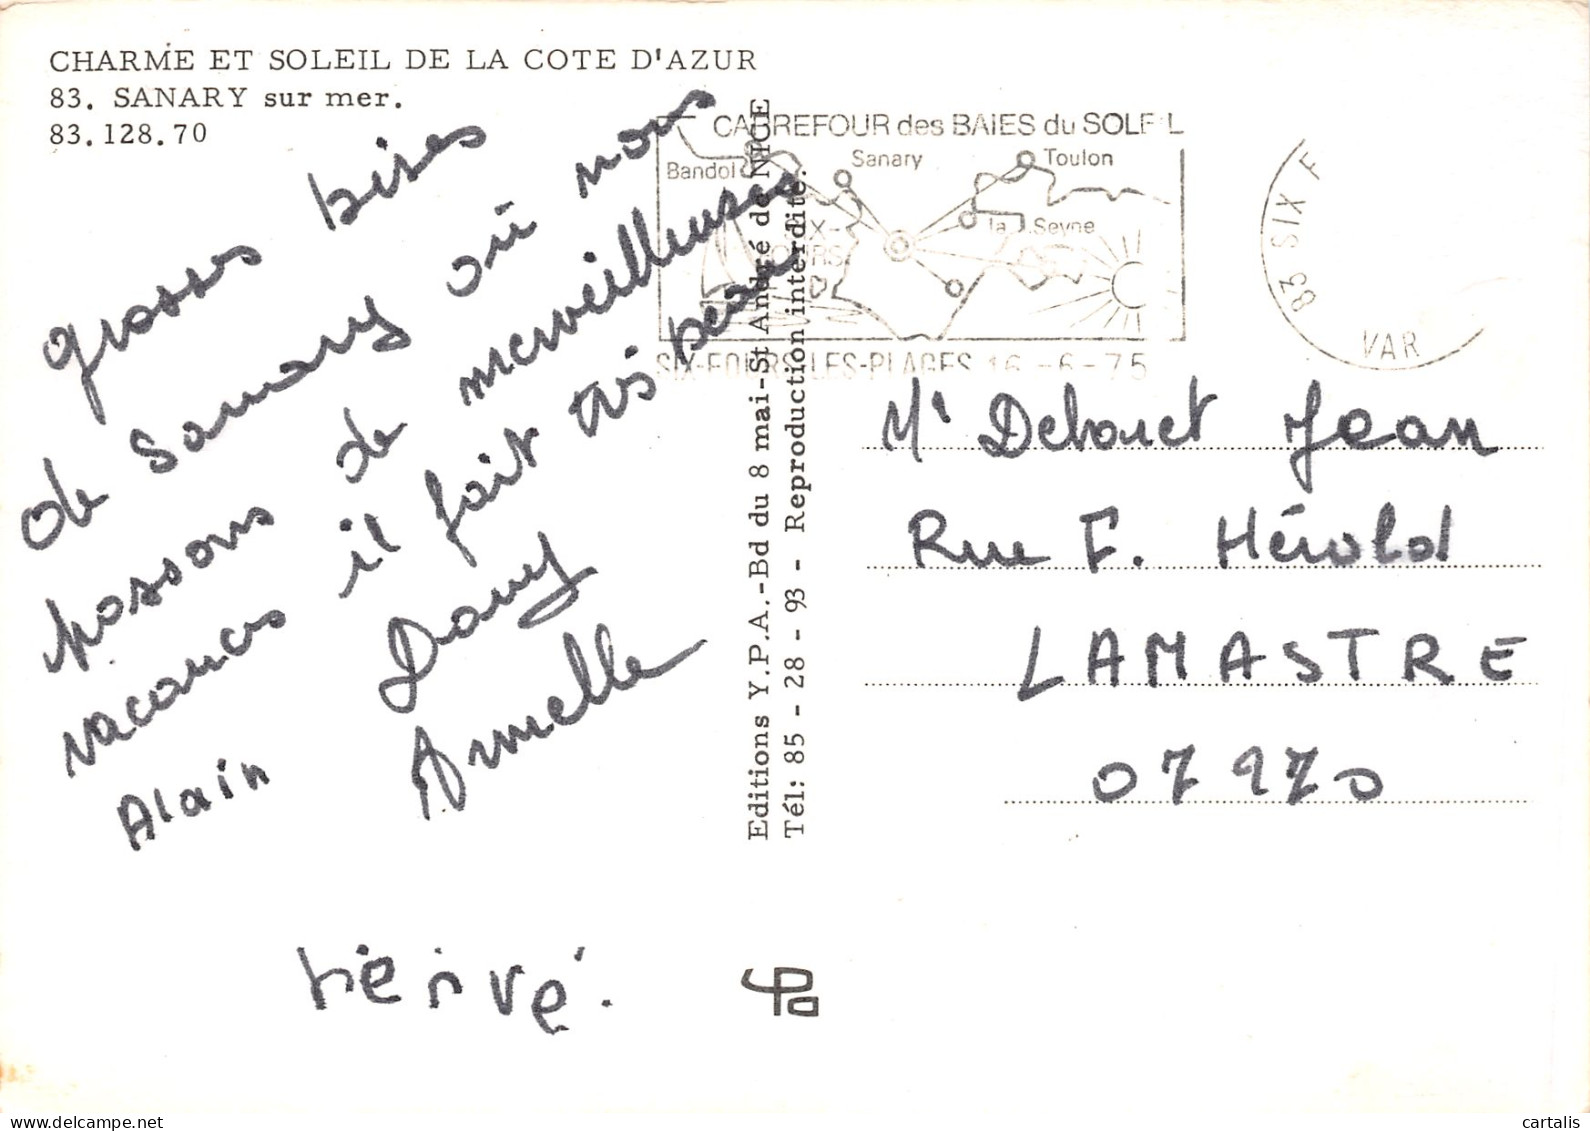 CHARME ET SOLEIL DE LA COTE D'AZUR
83. SANARY sur mer.
83.128.70
grosses bises
de Sanary où nous
passons de merveilleuses
vacances il fait très beau
Dany
Alain Armelle
hervé.
Editions Y.P.A.-Bd du 8 mai-St André de NICE
Tél: 85 - 28 - 93 - Reproduction interdite.
CARREFOUR des BAIES du SOLEIL
Bandol Sanary Toulon
la Seyne
SIX-FOURS-LES-PLAGES 16-6-75
83 SIX F
VAR
Mr Debouct Jean
Rue F. Hérold
LAMASTRE
07270
cartespostales.com